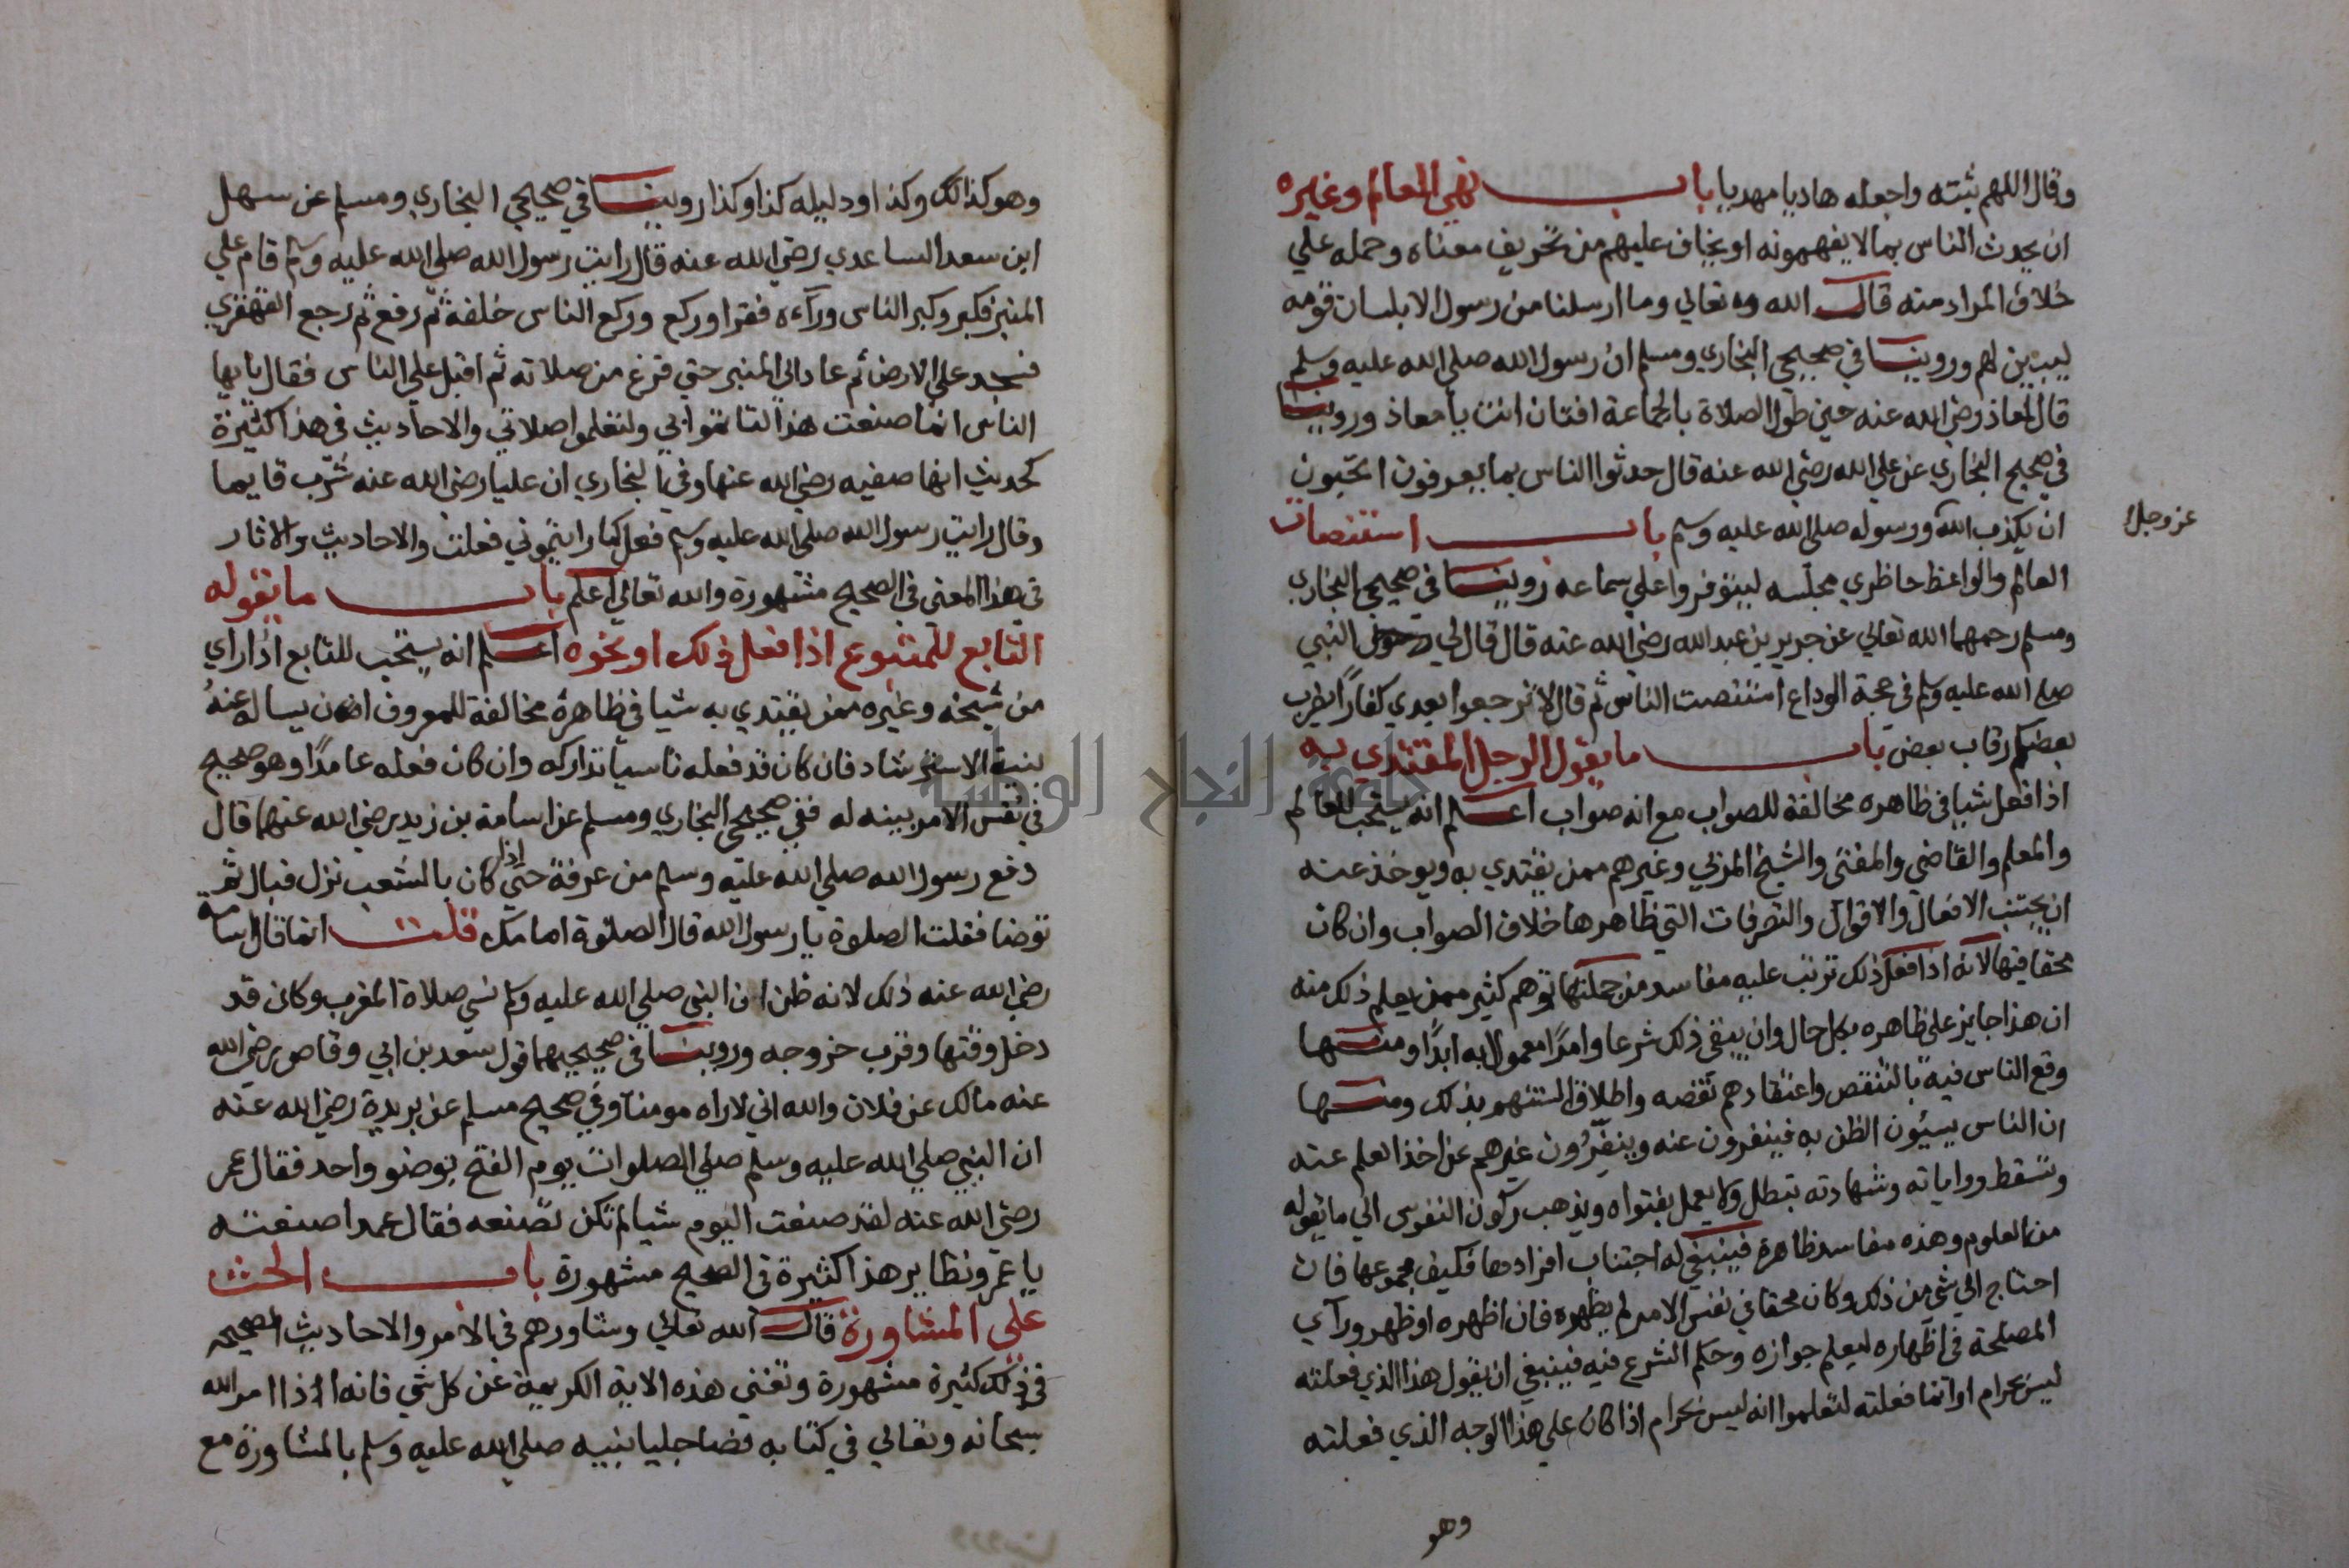 وقال اللهم ثبته واجعله هاديا مهديا باب نهي العالم وغيره
ان يحدث الناس بما لا يفهمونه او يخاف عليهم من تحريف معناه وحمله علي
خلاف المراد منه قال الله تعالي وما ارسلنا من رسول الا بلسان قومه
ليبين لهم وروينا في صحيحي البخاري ومسلم ان رسول الله صلي الله عليه وسلم
قال لمعاذ رضي الله عنه حين طول الصلاة بالجماعة افتان انت يا معاذ وروينا
في صحيح البخاري عن علي الله رضي الله عنه قال حدثوا الناس بما يعرفون اتحبون
ان يكذب الله ورسوله صلي الله عليه وسلم باب استنصات
عز وجل
العالم والواعظ حاظري مجلسه ليتوفروا علي سماعه روينا في صحيحي البخاري
ومسلم رحمهما الله تعالي عن جرير بن عبد الله رضي الله عنه قال قال لي النبي
صلي الله عليه وسلم في حجة الوداع استنصت الناس ثم قال لا ترجعوا بعدي كفارا يضرب
بعضكم رقاب بعض باب ما يقول الرجل المقتدي به
اذا فعل شيا في ظاهره مخالفة للصواب مع انه صواب اعلم انه يستحب للعالم
والمعلم والقاضي والمفتي والشيخ المزبي وغيرهم ممن يقتدي به ويوخذ عنه
ان يجتنب الافعال والاقوال والتصرفات التي ظاهرها خلاف الصواب وان كان
محقا فيها لانه اذا فعل ذلك ترتب عليه مفاسد من جملتها توهم كثير ممن يعلم ذلك منه
ان هذا جايز علي ظاهره بكل حال وان يبقي ذلك شرعا وامرا معمولا به ابدا ومنها
وقع الناس فيه بالتنقص واعتقادهم نقصه واطلاق السنتهم بذلك ومنها
ان الناس يسيئون الظن به فينفرون عنه وينفرون غيرهم عن اخذ العلم عنه
وتسقط رواياته وشهادته يتبطل ولا يعمل بفتواه ويذهب ركون النفوس الي ما يقوله
من العلوم وهذه مفاسد ظاهرة فينبغي له اجتناب افرادها فكيف بمجموعها فان
احتاج الي شي من ذلك وكان محقا في نفس الامر لم يظهره فان اظهره او ظهر وراي
المصلحة في اظهاره ليعلم جوازه وحكم الشرع فيه فينبغي ان يقول هذا الذي فعلته
ليس بحرام او انما فعلته لتعلموا انه ليس بحرام اذا كان علي هذا الوجه الذي فعلته
وهو
وهو كذالك وكذا ودليله كذا وكذا روينا في صحيحي البخاري ومسلم عن سهل
ابن سعد الساعدي رضي الله عنه قال رايت رسول الله صلي الله عليه وسلم قام علي
المنبر فكبر وكبر الناس ورآءه فقرا وركع وركع الناس خلفه ثم رفع ثم رجع القهقري
فسجد علي الارض ثم عاد الي المنبر حتي فرغ من صلاته ثم اقبل علي الناس فقال يايها
الناس انما صنعت هذا لتاتموا بي ولتعلموا صلاتي والاحاديث في هذا كثيرة
كحديث انها صفيه رضي الله عنها وفي البخاري ان عليا رضي الله عنه شرب قايما
وقال رايت رسول الله صلي الله عليه وسلم فعل كما رايتموني فعلت والاحاديث والاثار
في هذا المعني في الصحيح مشهورة والله تعالي اعلم باب ما يقوله
التابع للمتبوع اذا فعل ذلك او نحوه اعلم انه يستحب للتابع اذا راي
من شيخه وغيره ممن يقتدي به شيا في ظاهره مخالفة للمعروف ان يساله عنه
بنية الاسترشاد فان كان قد فعله ناسيا تداركه وان كان فعله عامدا وهو صحيح
في نفس الامر بينه له ففي صحيحي البخاري ومسلم عن اسامة بن زيد رضي الله عنهما قال
دفع رسول الله صلي الله عليه وسلم من عرفة حتي اذا كان بالشعب نزل فبال ثم
توضا فقلت الصلوة يا رسول الله قال الصلوة امامك قلت انما قال اسامه
رضي الله عنه ذلك لانه ظن ان النبي صلي الله عليه وسلم نسي صلاة المغرب وكان قد
دخل وقتها وقرب خروجه وروينا في صحيحيهما قول سعد بن ابي وقاص رضي الله
عنه مالك عن فلان والله اني لاراه مومنا وفي صحيح مسلم عن بريدة رضي الله عنه
ان النبي صلي الله عليه وسلم صلي الصلوات يوم الفتح بوضو واحد فقال عمر
رضي الله عنه لقد صنعت اليوم شيا لم تكن تصنعه فقال عمدا صنعته
يا عمر ونظاير هذا كثيرة في الصحيح مشهورة باب الحث
علي المشاورة قال الله تعالي وشاورهم في الامر والاحاديث الصحيحه
في ذلك كثيرة مشهورة وتغني هذه الاية الكريمة عن كل شي فانه اذا امر الله
سبحانه وتعالي في كتابه نصا جليا نبيه صلي الله عليه وسلم بالمشاورة مع
جامعة النجاح الوطنية